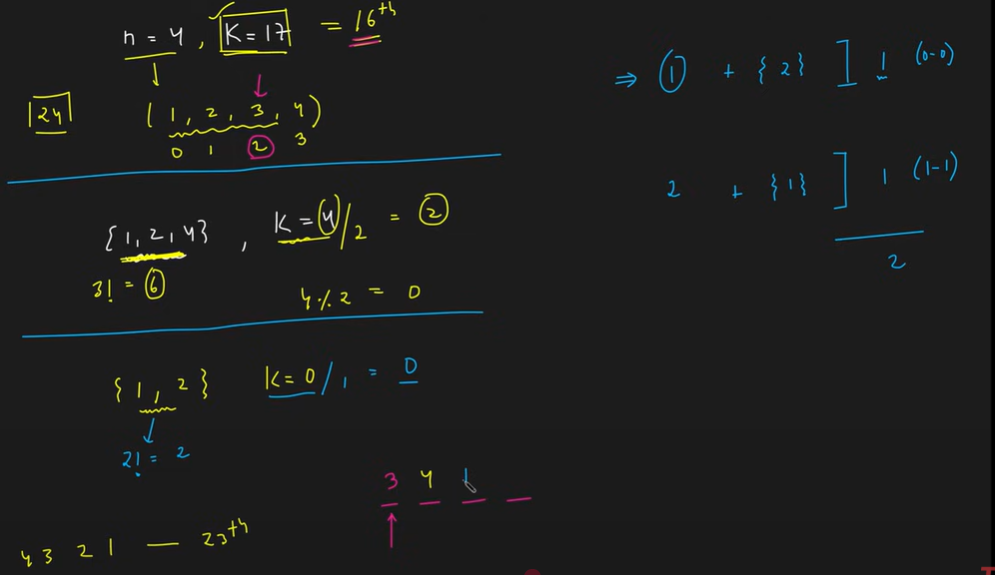 n = 4 , K = 17 = 16th
24
( 1, 2, 3, 4 )
0 1 2 3
{ 1, 2, 4 } , K = 4/2 = 2
3! = 6
4 % 2 = 0
{ 1, 2 } K = 0/1 = 0
2! = 2
3 4 1
4 3 2 1 — 23th
⇒ 1 + { 2 } ] 1 (0-0)
2 + { 1 } ] 1 (1-1)
2